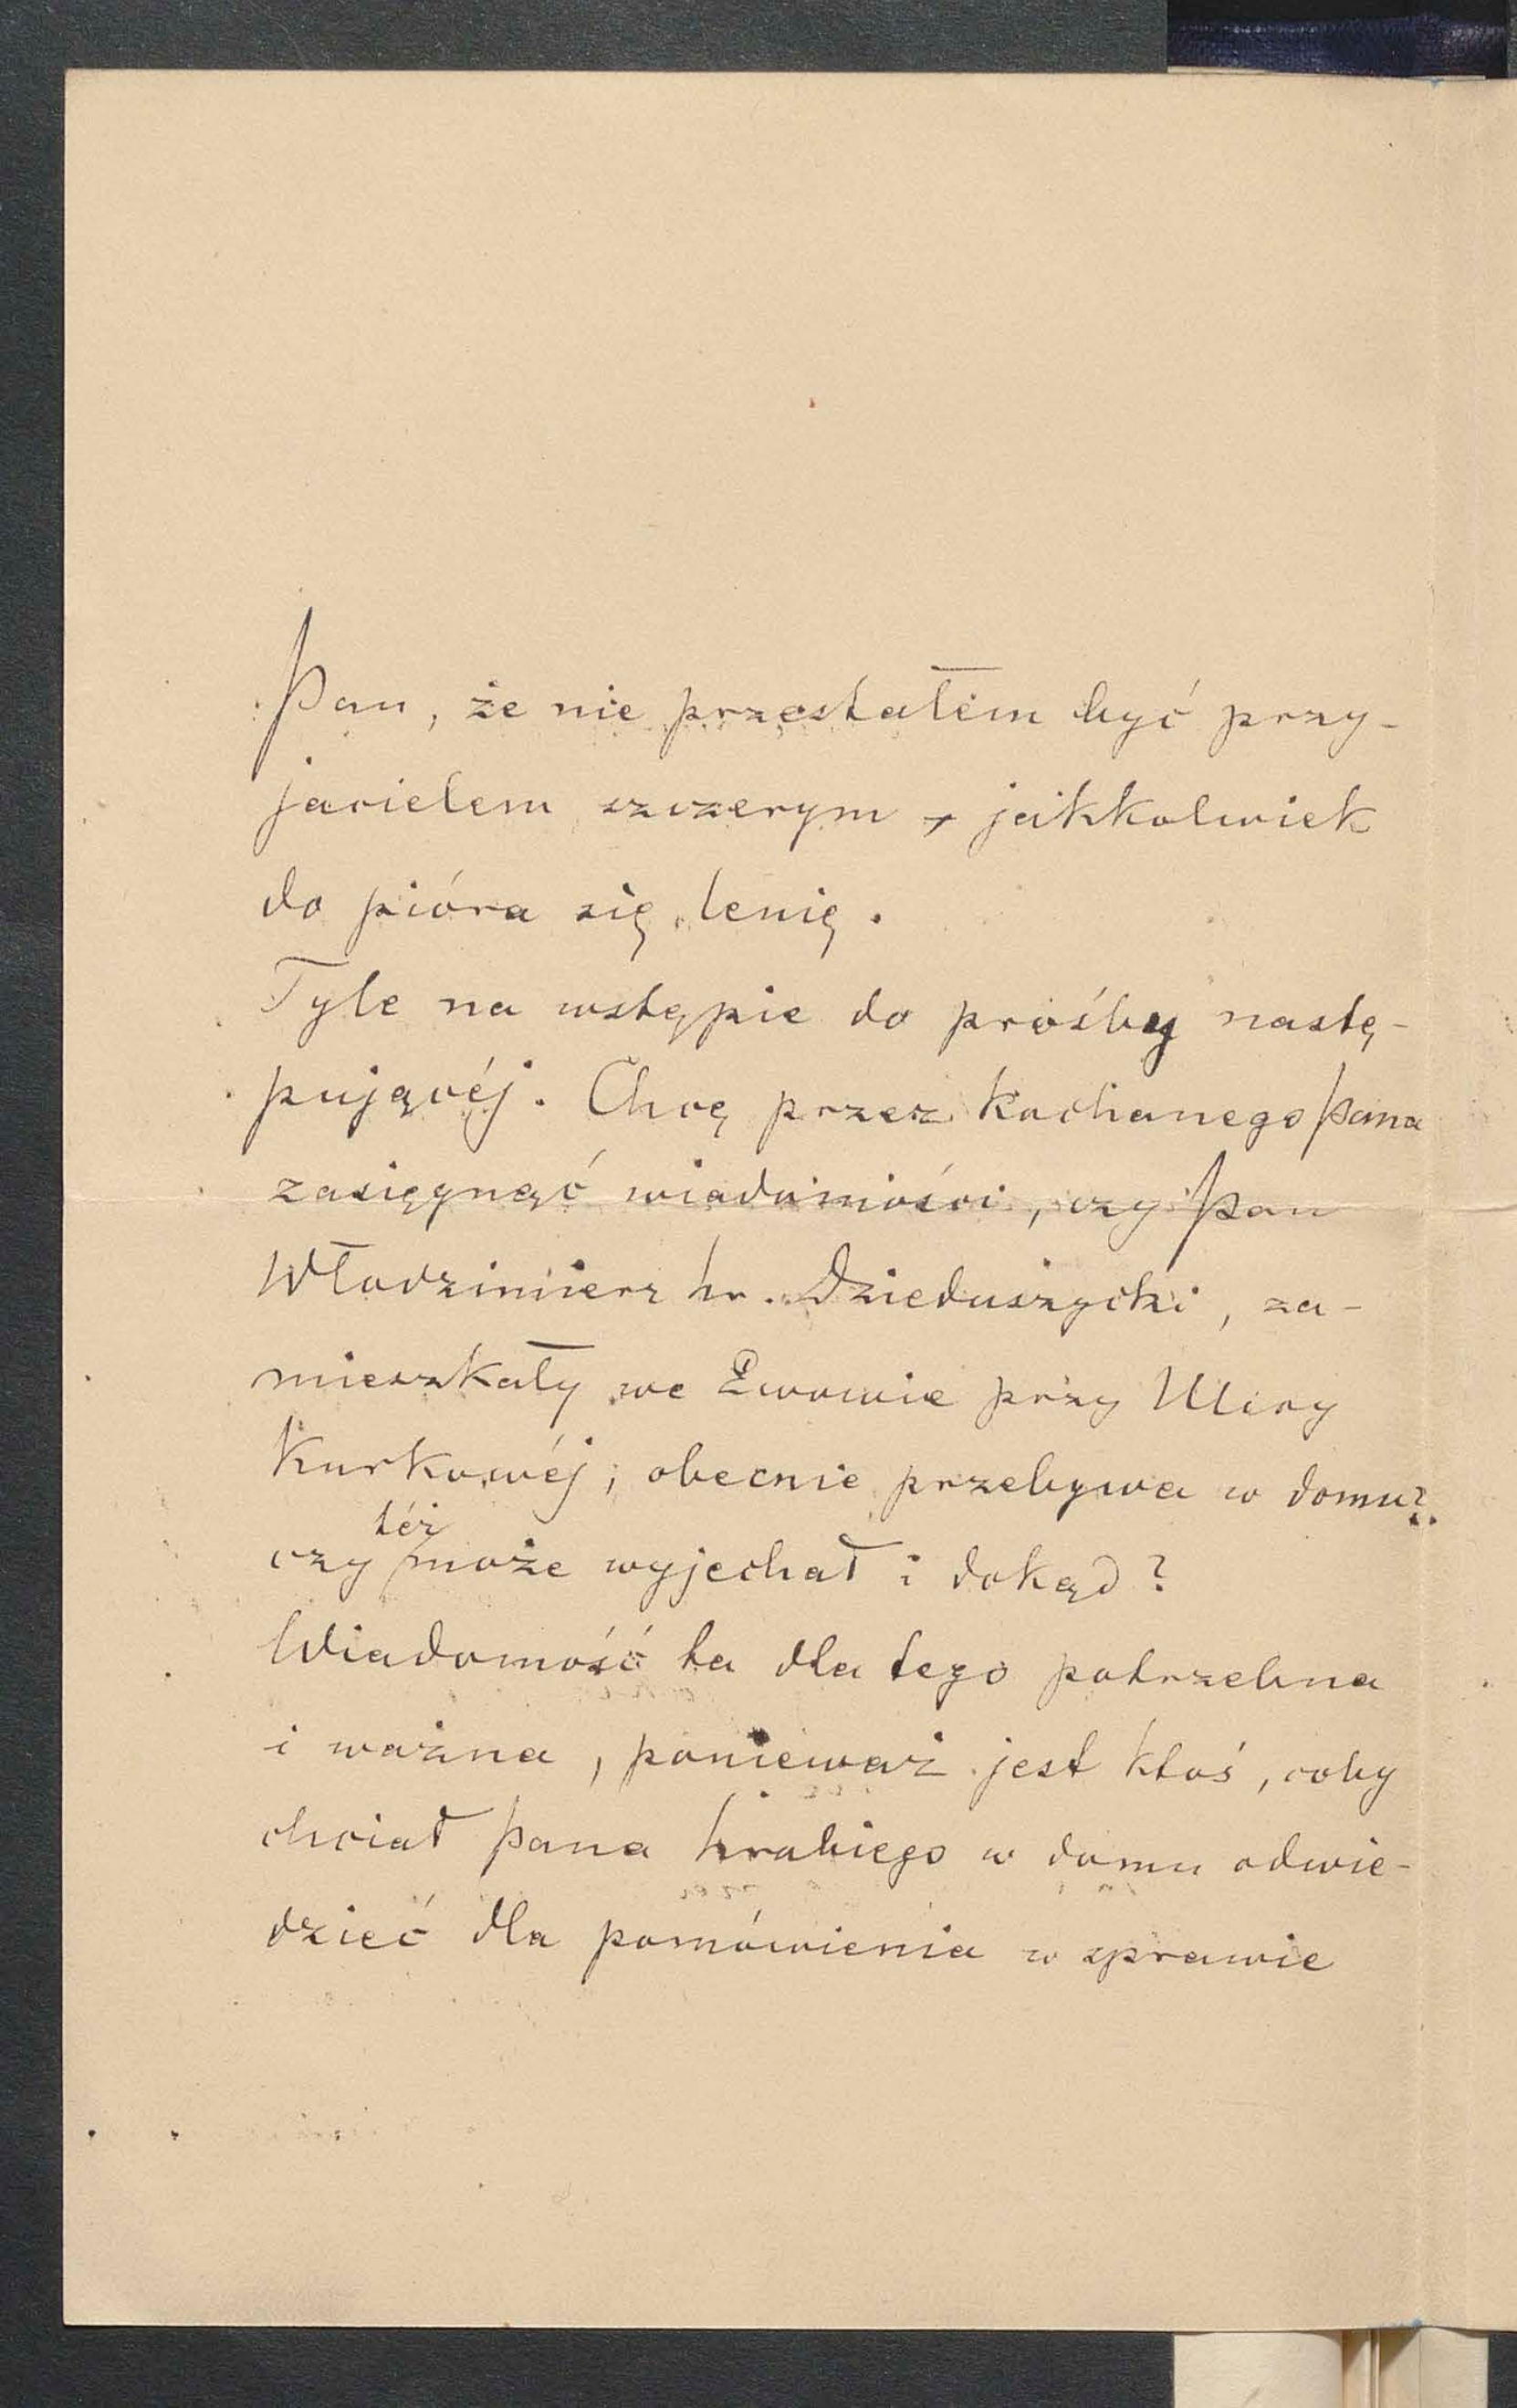 Pan, że nie przestałem być przy-
jacielem szczerym, jakkolwiek
do pióra się lenię.
Tyle na wstępie do prośby nastę-
pującéj. Chcę przez kochanego Pana
zasięgnąć wiadomości, czy Pan
Włodzimierz hr. Dzieduszycki, za-
mieszkały we Lwowie przy Ulicy
Kurkowéj; obecnie przebywa w domu?
też
czy może wyjechał i dokąd?
Wiadomość ta dla tego potrzebna
i ważna, ponieważ jest ktoś, coby
chciał Pana hrabiego w domu odwie-
dzieć dla pomówienia w sprawie